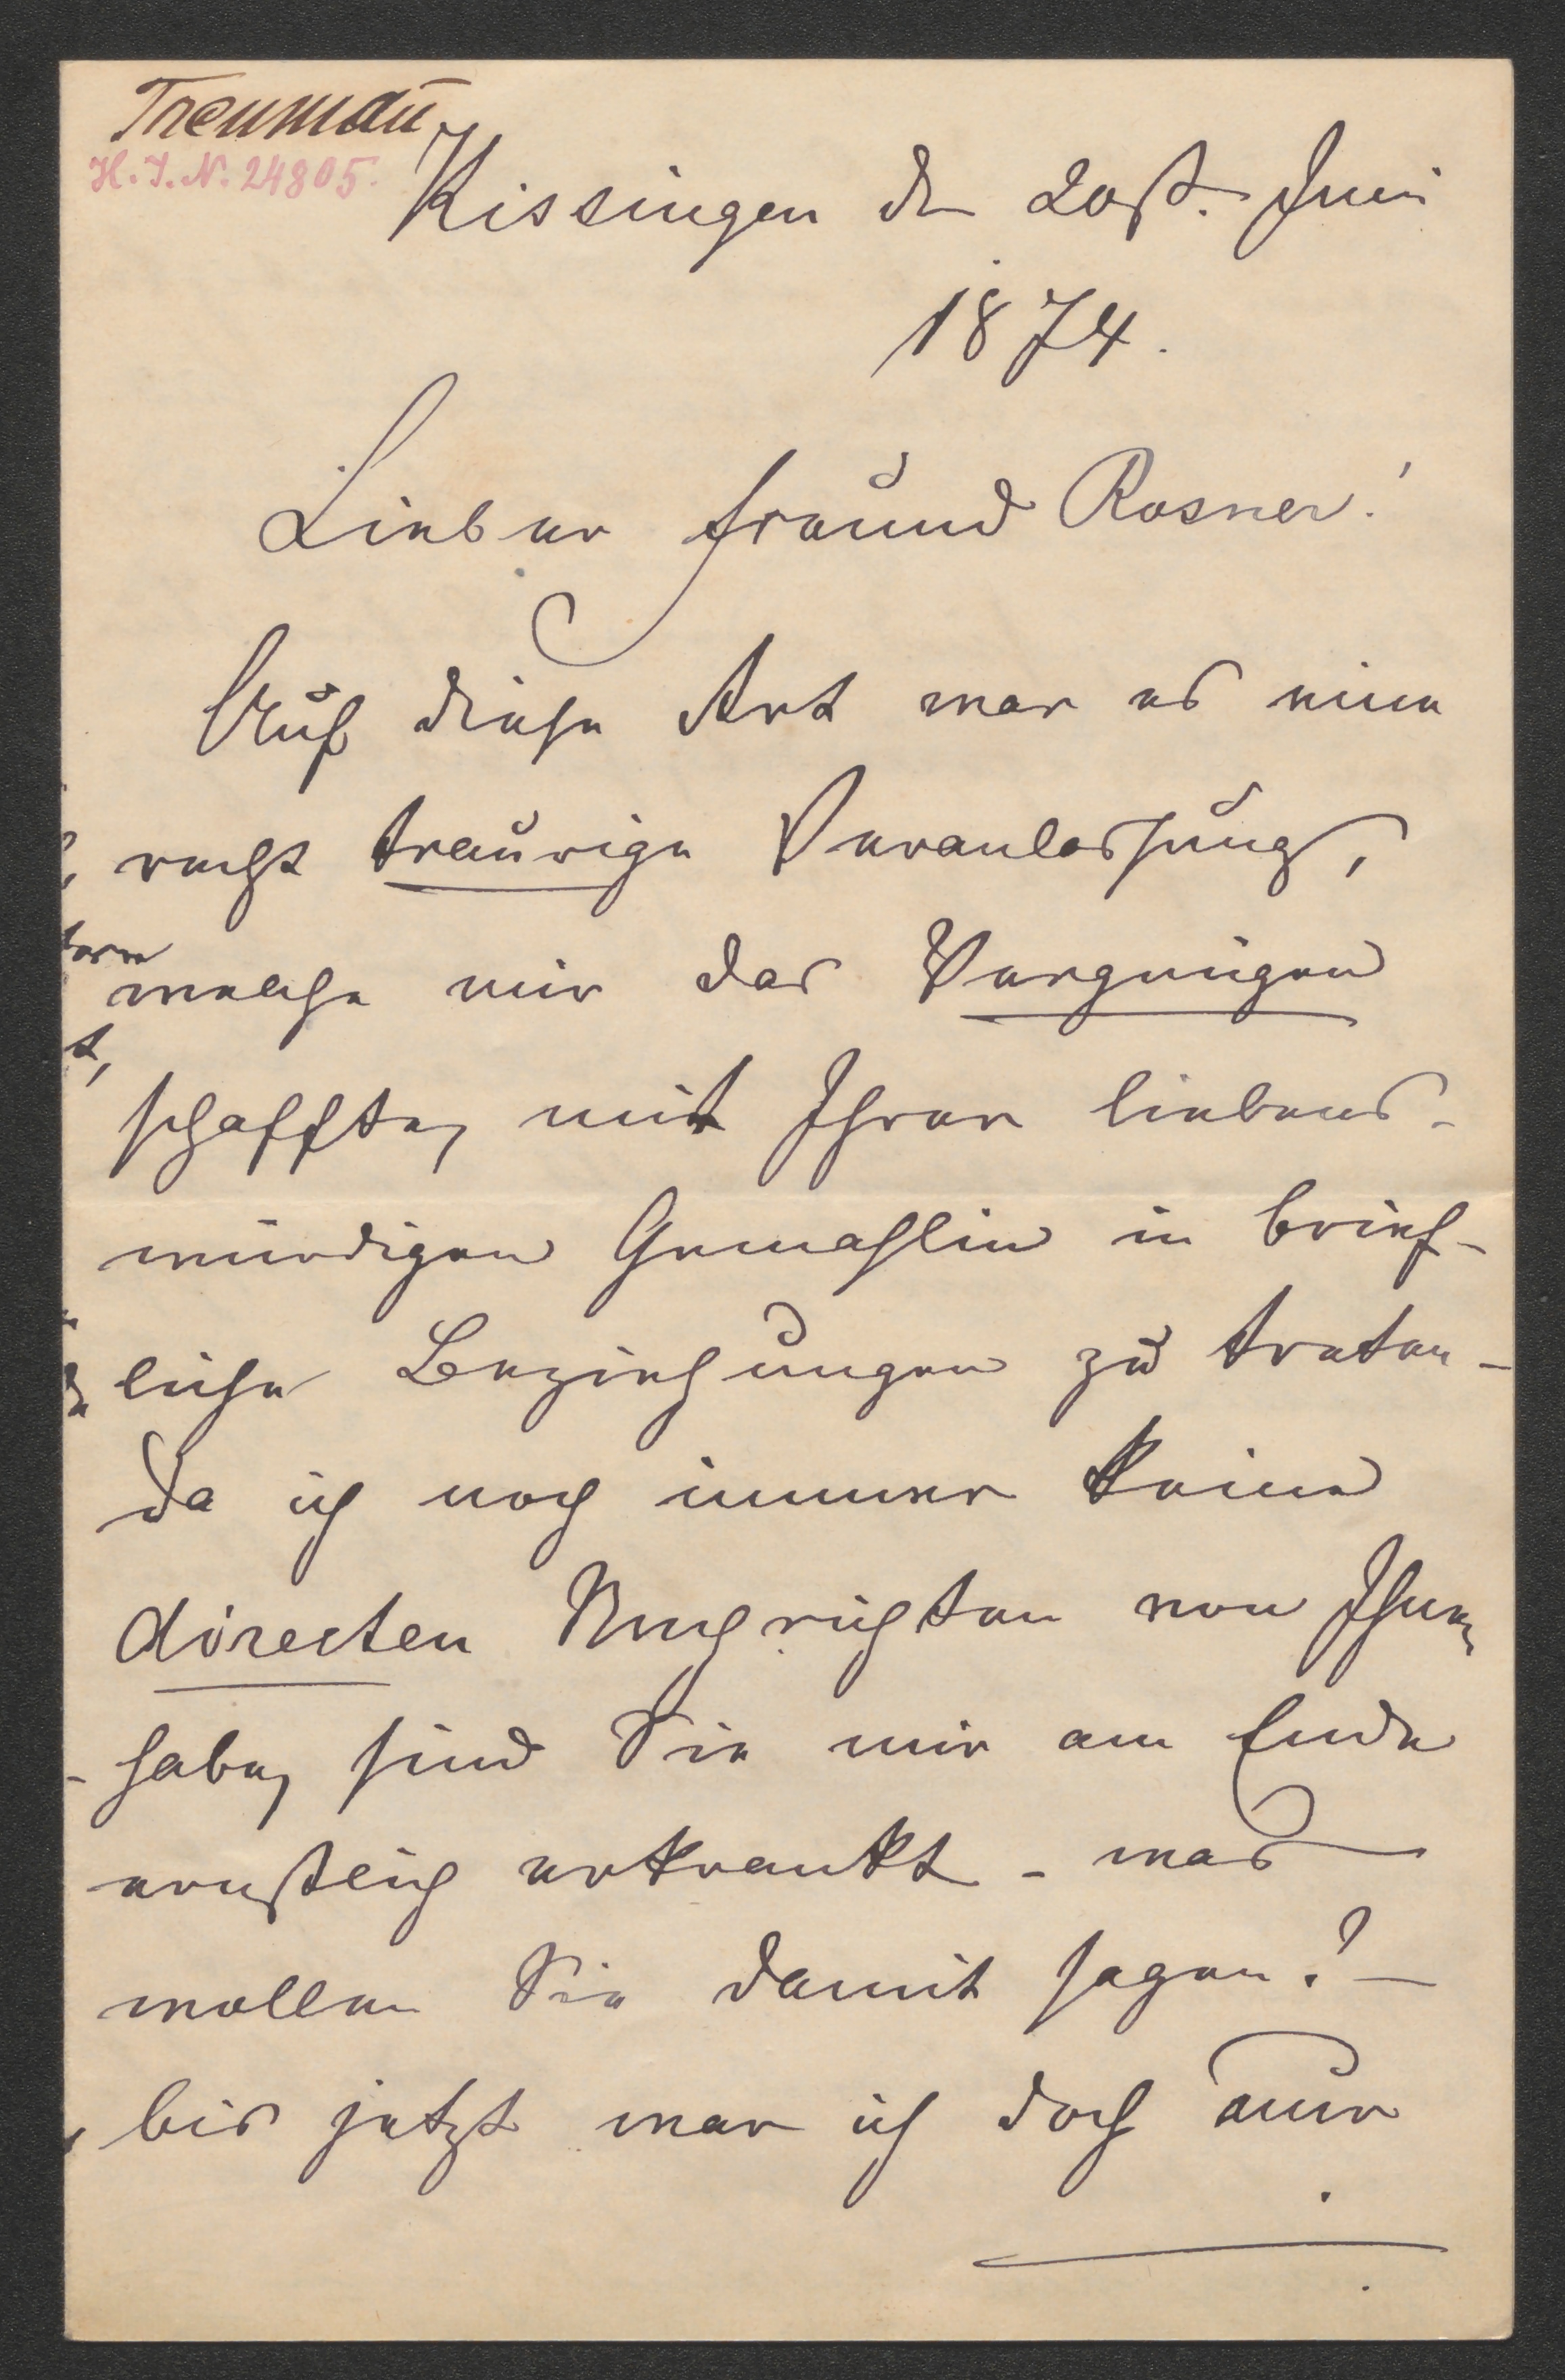 Treuman̄
H. I. N. 24805.
Kissingen den 20st. Juni
1874.
Lieber Freund Rosner!
Auf diese Art war es eine
recht traurige Veranlassung,
welche mir das Vergnügen
schaffte, mit Ihrer liebens-
würdigen Gemahlin in brief-
liche Beziehungen zu treten -
da ich noch immer keine
directen Nachrichten von Ihnen
habe, sind Sie mir am Ende
ernstlich erkrankt - was
wollen Sie damit sagen? -
bis jetzt war ich doch nur